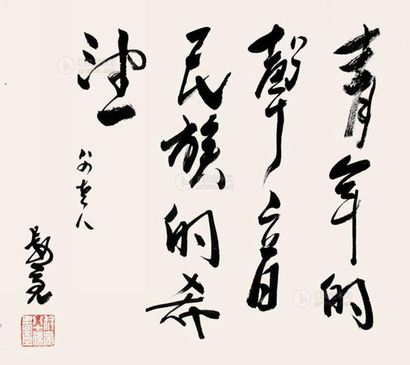 青年的
聲音
民族的希
望